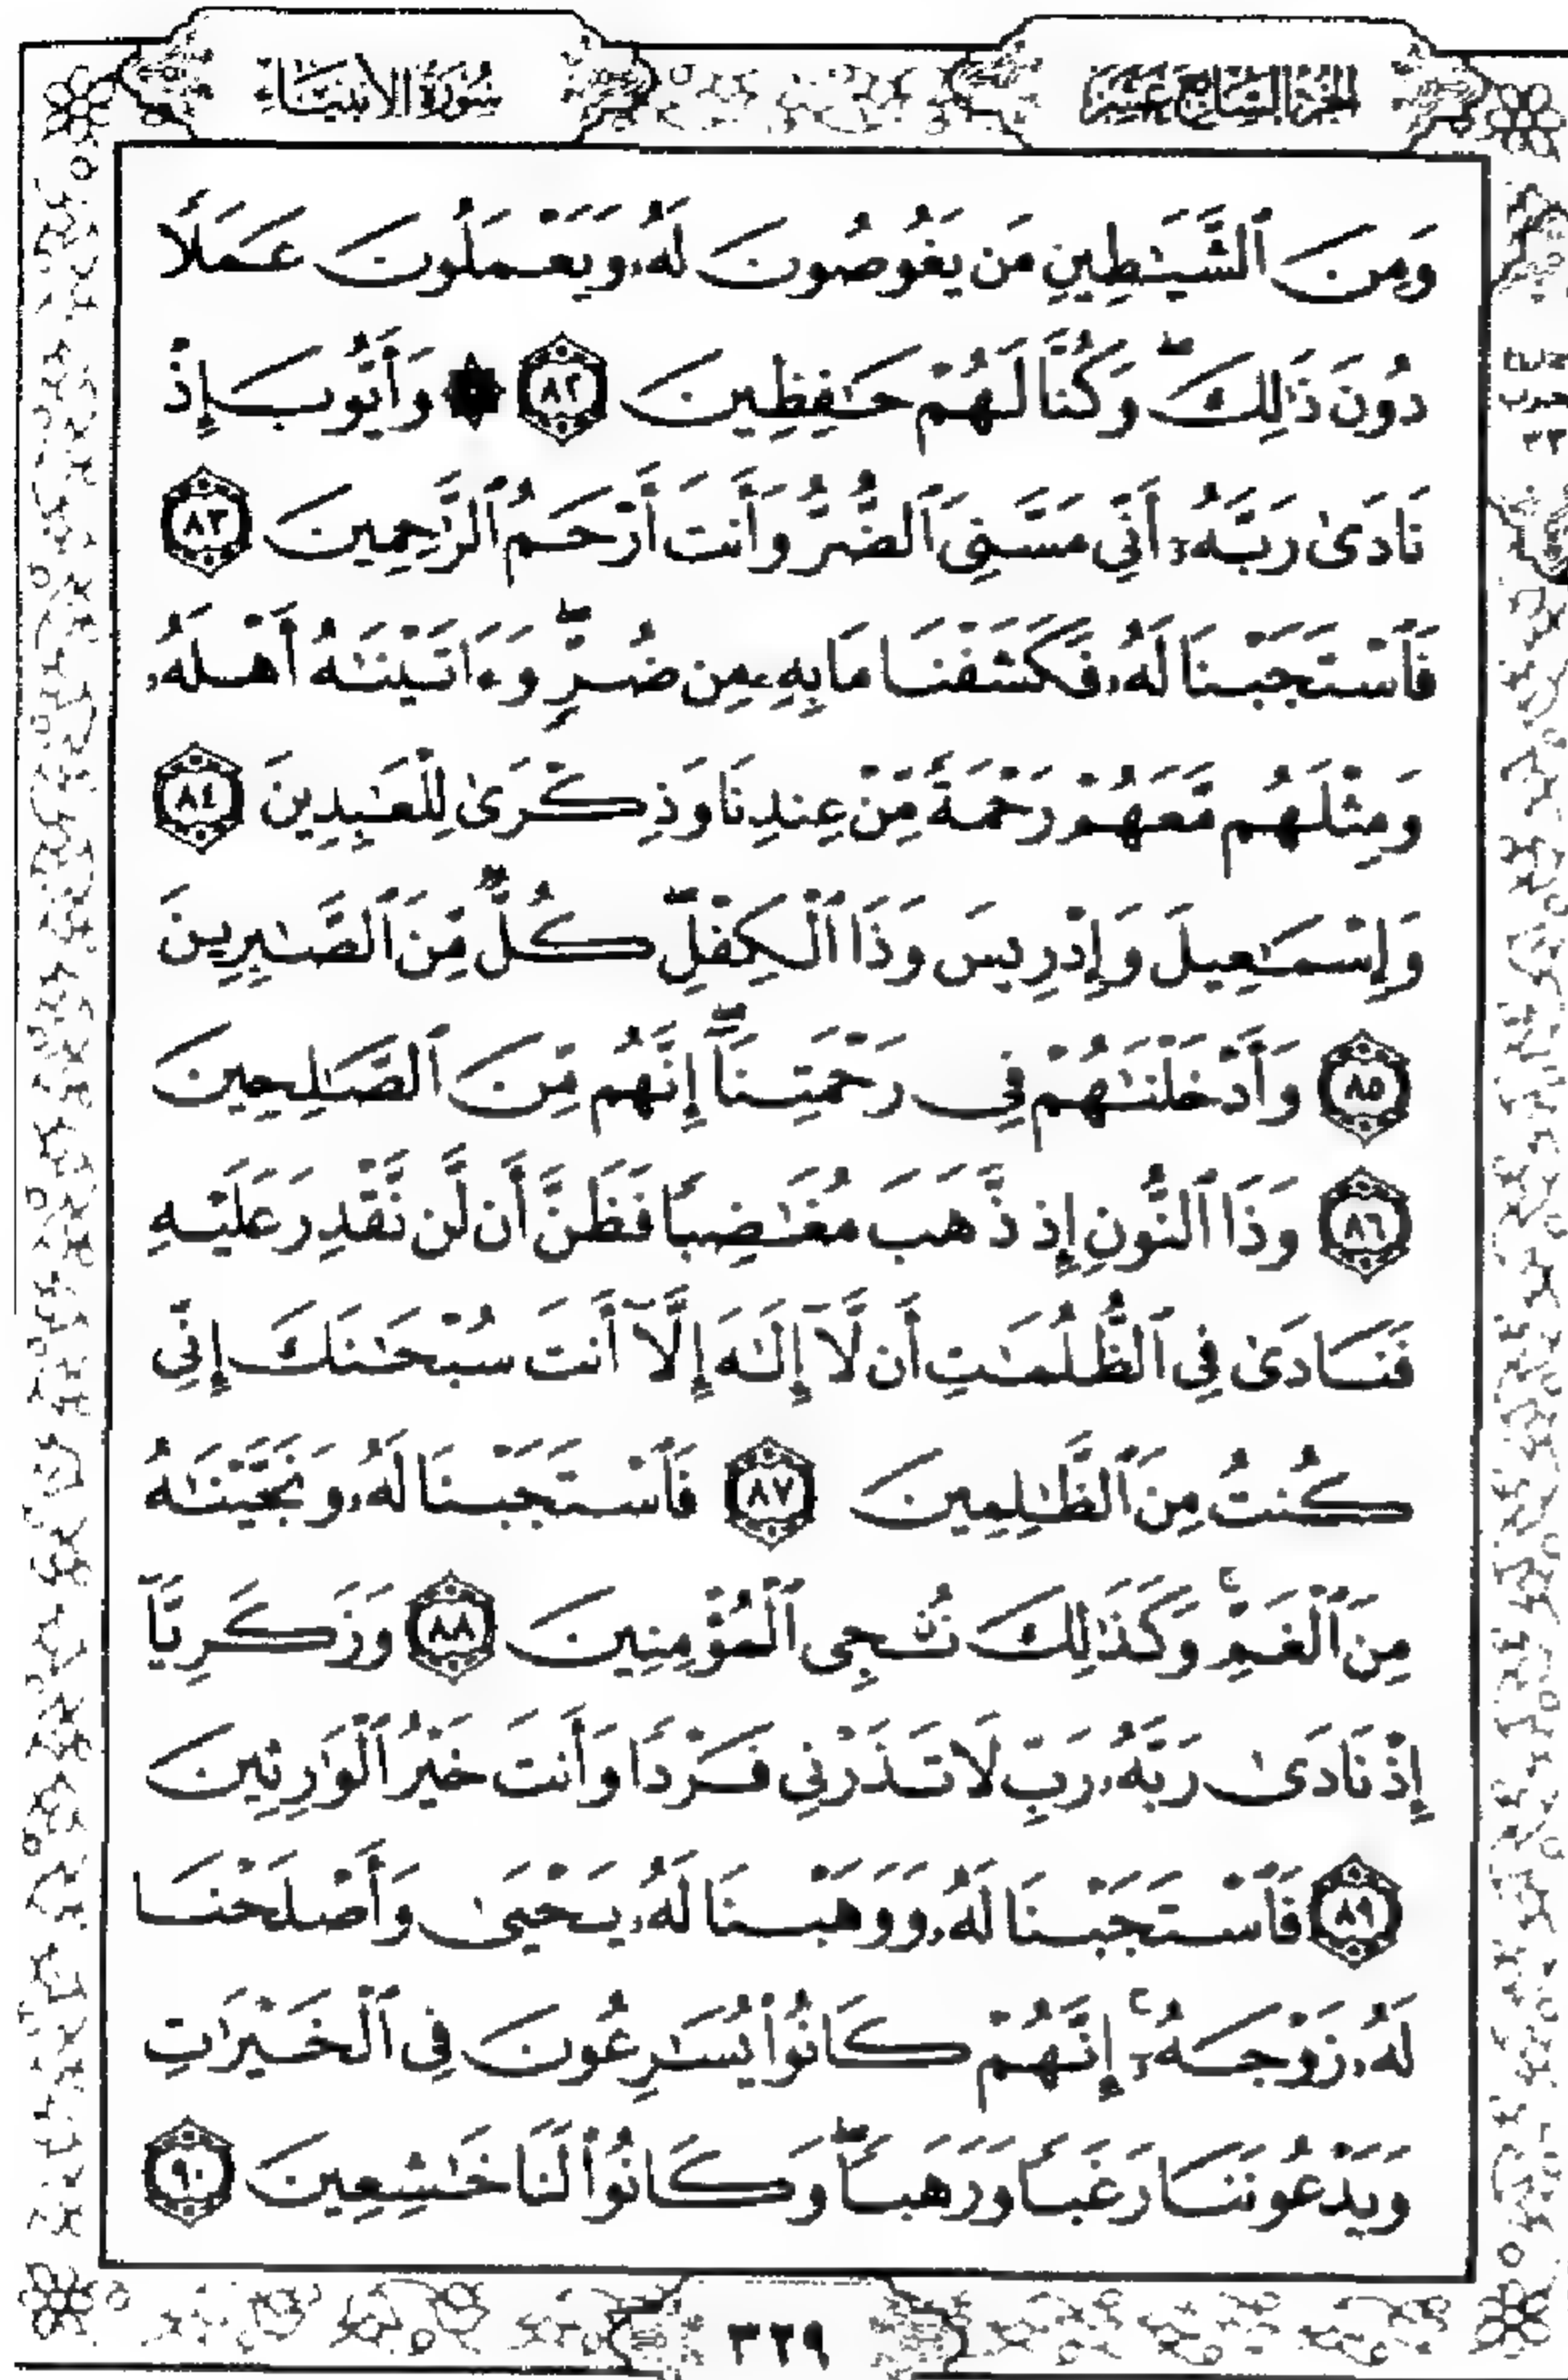 الجزء السابع عشر
سورة الأنبياء
وَمِنَ ٱلشَّيَٰطِينِ مَن يَغُوصُونَ لَهُۥ وَيَعْمَلُونَ عَمَلًا
دُونَ ذَٰلِكَ ۖ وَكُنَّا لَهُمْ حَٰفِظِينَ ٨٢ ۞ وَأَيُّوبَ إِذْ
نَادَىٰ رَبَّهُۥٓ أَنِّى مَسَّنِىَ ٱلضُّرُّ وَأَنتَ أَرْحَمُ ٱلرَّٰحِمِينَ ٨٣
فَٱسْتَجَبْنَا لَهُۥ فَكَشَفْنَا مَا بِهِۦ مِن ضُرٍّ ۖ وَءَاتَيْنَٰهُ أَهْلَهُۥ
وَمِثْلَهُم مَّعَهُمْ رَحْمَةً مِّنْ عِندِنَا وَذِكْرَىٰ لِلْعَٰبِدِينَ ٨٤
وَإِسْمَٰعِيلَ وَإِدْرِيسَ وَذَا ٱلْكِفْلِ ۖ كُلٌّ مِّنَ ٱلصَّٰبِرِينَ
٨٥ وَأَدْخَلْنَٰهُمْ فِى رَحْمَتِنَآ ۖ إِنَّهُم مِّنَ ٱلصَّٰلِحِينَ
٨٦ وَذَا ٱلنُّونِ إِذ ذَّهَبَ مُغَٰضِبًا فَظَنَّ أَن لَّن نَّقْدِرَ عَلَيْهِ
فَنَادَىٰ فِى ٱلظُّلُمَٰتِ أَن لَّآ إِلَٰهَ إِلَّآ أَنتَ سُبْحَٰنَكَ إِنِّى
كُنتُ مِنَ ٱلظَّٰلِمِينَ ٨٧ فَٱسْتَجَبْنَا لَهُۥ وَنَجَّيْنَٰهُ
مِنَ ٱلْغَمِّ ۚ وَكَذَٰلِكَ نُۨجِى ٱلْمُؤْمِنِينَ ٨٨ وَزَكَرِيَّآ
إِذْ نَادَىٰ رَبَّهُۥ رَبِّ لَا تَذَرْنِى فَرْدًا وَأَنتَ خَيْرُ ٱلْوَٰرِثِينَ
٨٩ فَٱسْتَجَبْنَا لَهُۥ وَوَهَبْنَا لَهُۥ يَحْيَىٰ وَأَصْلَحْنَا
لَهُۥ زَوْجَهُۥٓ ۚ إِنَّهُمْ كَانُوا۟ يُسَٰرِعُونَ فِى ٱلْخَيْرَٰتِ
وَيَدْعُونَنَا رَغَبًا وَرَهَبًا ۖ وَكَانُوا۟ لَنَا خَٰشِعِينَ ٩٠
٣٢٩